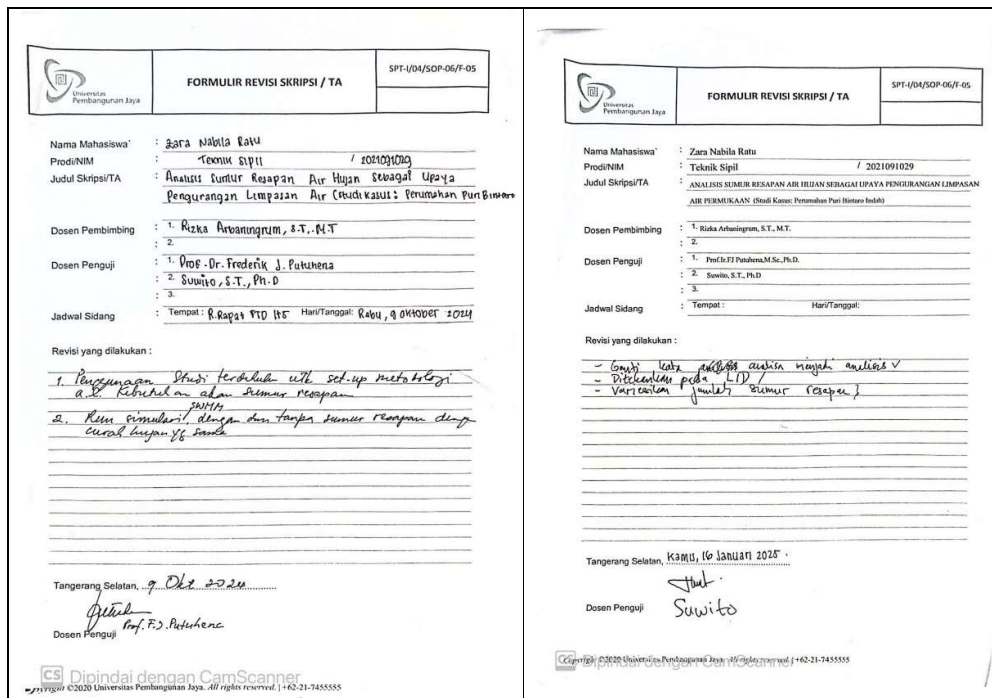 Universitas
Pembangunan Jaya
FORMULIR REVISI SKRIPSI / TA
SPT-I/04/SOP-06/F-05
Nama Mahasiswa : Zara Nabila Ratu
Prodi/NIM : Teknik Sipil / 2021091029
Judul Skripsi/TA : Analisis Sumur Resapan Air Hujan Sebagai Upaya
Pengurangan Limpasan Air (Studi Kasus: Perumahan Puri Bintaro
Dosen Pembimbing : 1. Rizka Arbaningrum, S.T., M.T
: 2.
Dosen Penguji : 1. Prof. Dr. Frederik J. Putuhena
: 2. Suwito, S.T., Ph.D
: 3.
Jadwal Sidang : Tempat : R.Rapat Hari/Tanggal: Rabu, 9 Oktober 2024
Revisi yang dilakukan :
1. Penggunaan Studi terdahulu utk set-up metodologi
a.l. kebutuhan akan sumur resapan
SWMM
2. Run simulasi, dengan dan tanpa sumur resapan dengan
curah hujan yg sama
Tangerang Selatan, 9 Okt 2024
Prof. F.J. Putuhena
Dosen Penguji
CS Dipindai dengan CamScanner
Copyright ©2020 Universitas Pembangunan Jaya. All rights reserved. | +62-21-7455555
Universitas
Pembangunan Jaya
FORMULIR REVISI SKRIPSI / TA
SPT-I/04/SOP-06/F-05
Nama Mahasiswa : Zara Nabila Ratu
Prodi/NIM : Teknik Sipil / 2021091029
Judul Skripsi/TA : ANALISIS SUMUR RESAPAN AIR HUJAN SEBAGAI UPAYA PENGURANGAN LIMPASAN
AIR PERMUKAAN (Studi Kasus: Perumahan Puri Bintaro Indah)
Dosen Pembimbing : 1. Rizka Arbaningrum, S.T., M.T.
: 2.
Dosen Penguji : 1. Prof.Ir.FJ Putuhena,M.Sc.,Ph.D.
: 2. Suwito, S.T., Ph.D
: 3.
Jadwal Sidang : Tempat : Hari/Tanggal:
Revisi yang dilakukan :
- Ganti kata analisa menjadi analisis ✓
- Ditekankan pada LID
- Variasikan jumlah sumur resapan
Tangerang Selatan, Kamis, 16 Januari 2025.
Dosen Penguji Suwito
CS Dipindai dengan CamScanner
Copyright ©2020 Universitas Pembangunan Jaya. All rights reserved. | +62-21-7455555